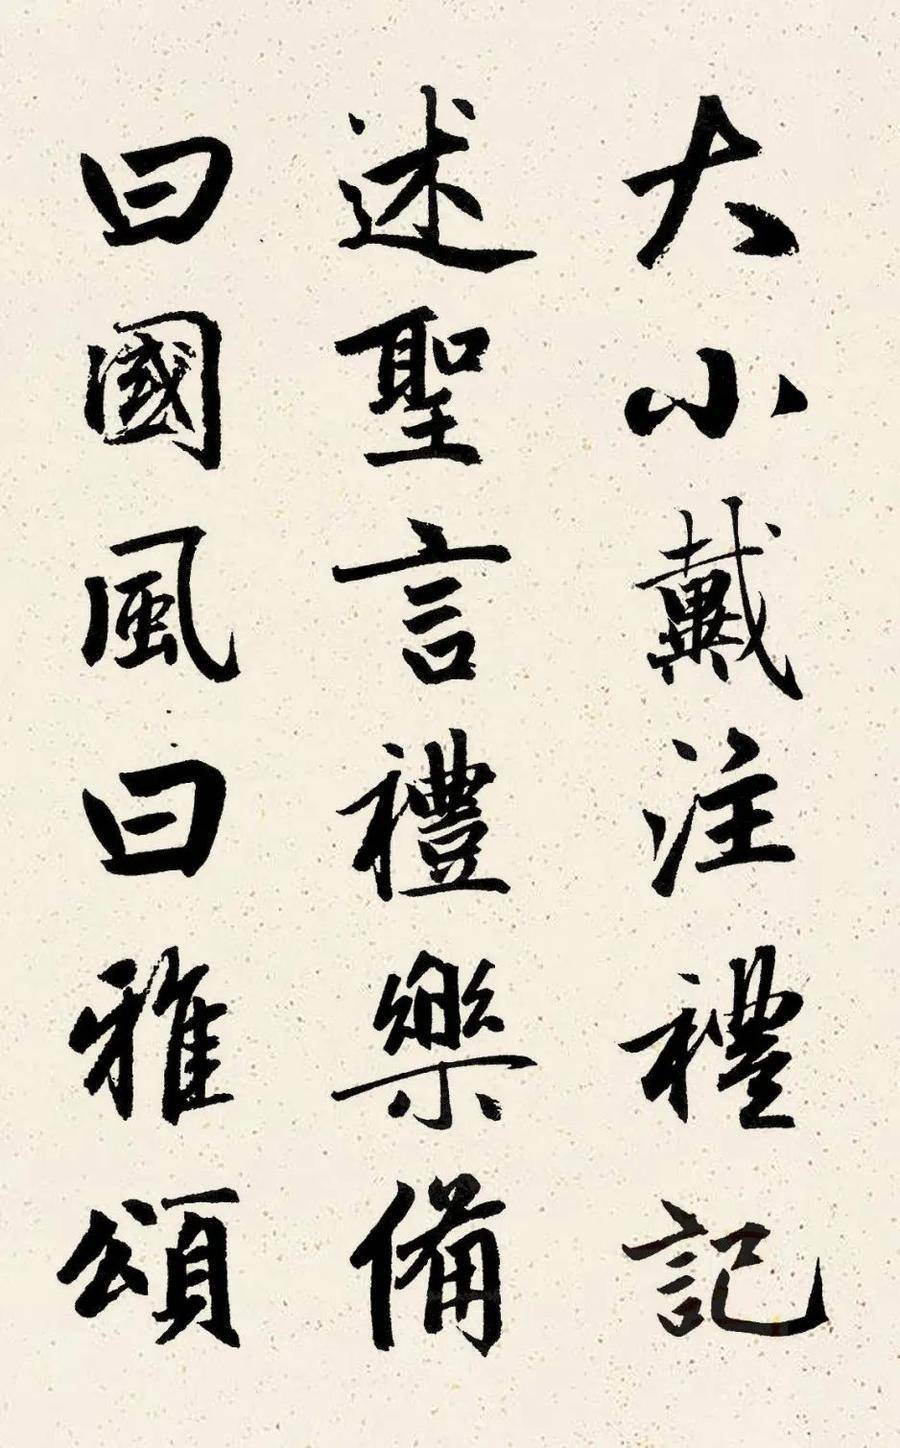 大小戴注禮記
述聖言禮樂備
曰國風曰雅頌